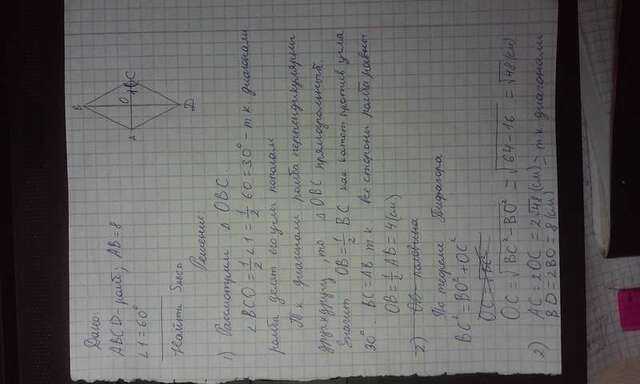 Дано:
ABCD - ромб; AB=8
∠1=60°
Найти
Решение
1) Рассмотрим △ OBC.
∠BCO=½∠1=½ 60=30° - т к диагонали
ромба делят его углы пополам
Т к диагонали ромба перпендикулярны
друг другу, то △ OBC прямоугольный.
Значит OB=½ BC как катет против угла
30° BC=AB т к все стороны ромба равны
OB=½ AB=4(см)
2)
По теореме Пифагора
BC²=BO²+OC²
OC=√BC²-BO²=√64-16=√48(см)
2) AC=2OC=2√48(см) - т к диагонали
BD=2BO=8(см)
B
O
C
A
D